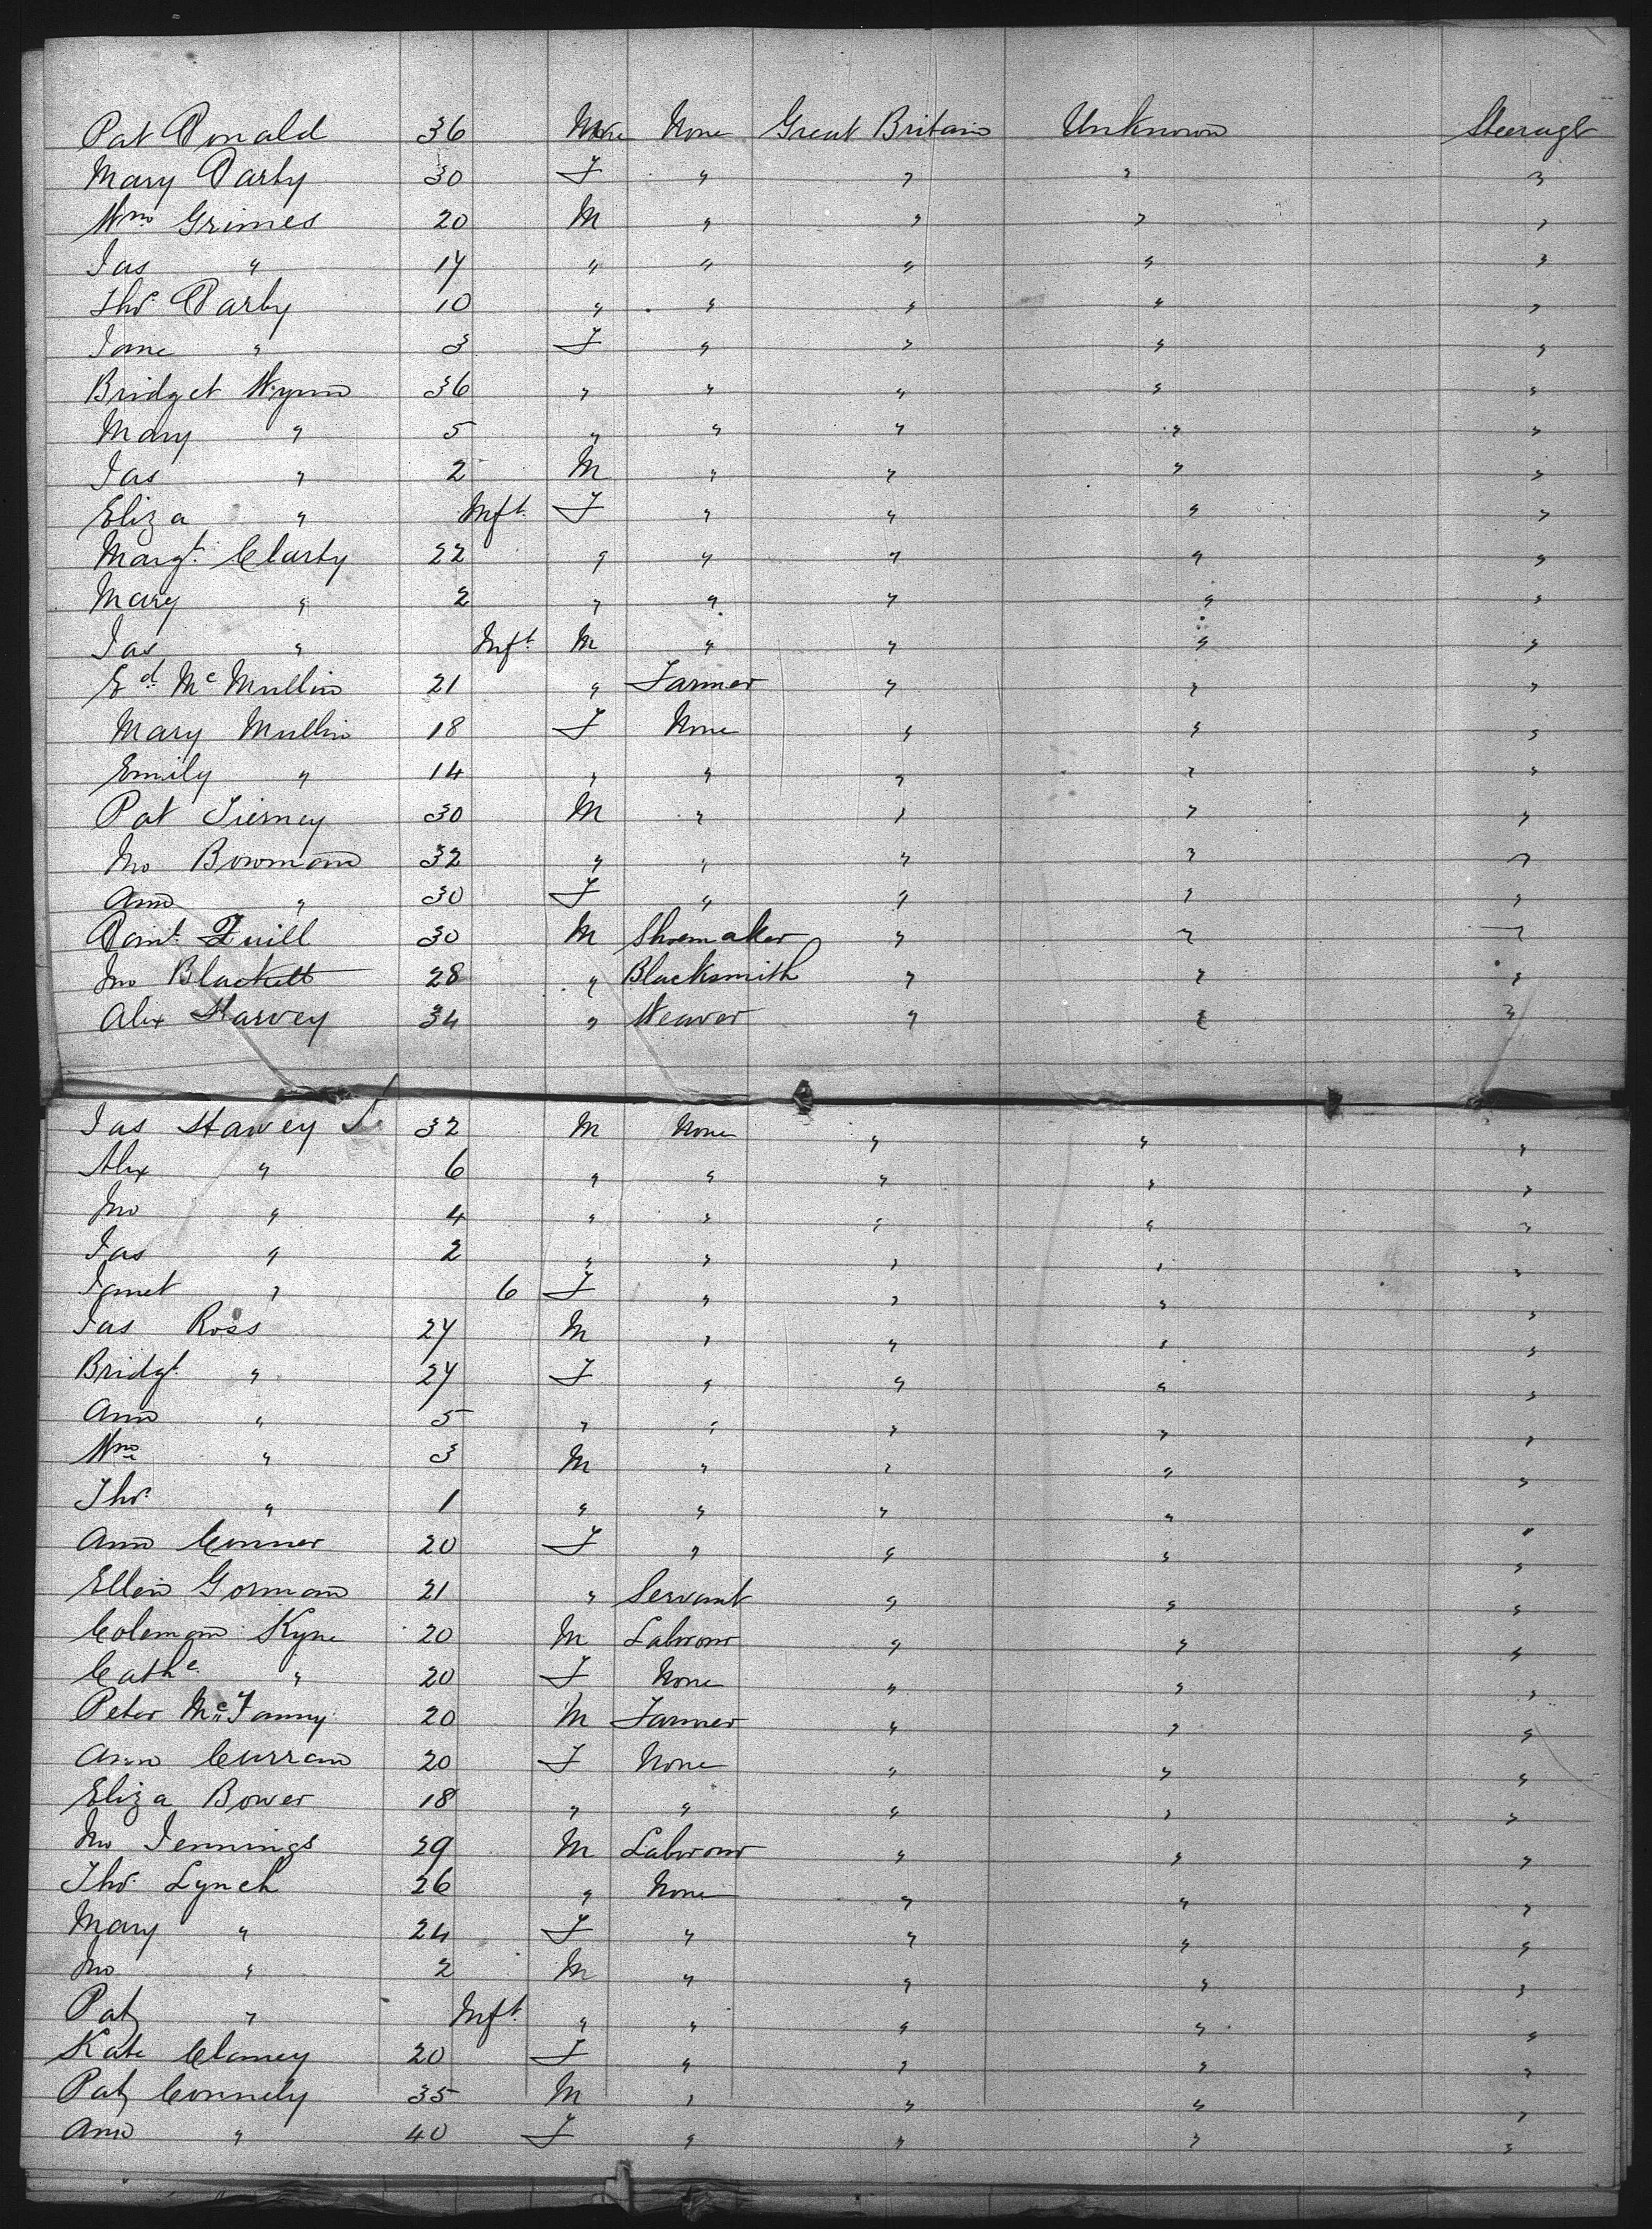 Pat Donald 36 None Great Britain Unknown Steerage
Mary Darby 30 F " " " "
Wm Grimes 20 M " " " "
Jas " 17 " " " " "
Thos Darby 10 " " " " "
Jane " 3 F " " " "
Bridget Wynn 36 " " " " "
Mary " 5 " " " " "
Jas " 2 M " " " "
Eliza " Inft F " " " "
Margt Clarty 22 " " " " "
Mary " 2 " " " " "
Jas " Inft M " " " "
Ed Mc Mullin 21 " Farmer " " "
Mary Mullin 18 F None " " "
Emily " 14 " " " " "
Pat Tierney 30 M " " " "
Jno Bowman 32 " " " " "
Ann " 30 F " " " "
Danl Quill 30 M Shoemaker " " "
Jno Blackett 28 " Blacksmith " " "
Alex Harvey 34 " Weaver " " "
Jas Harvey 32 M None " " "
Alex " 6 " " " " "
Jno " 4 " " " " "
Jas " 2 " " " " "
Janet " 6 F " " " "
Jas Ross 27 M " " " "
Bridgt " 27 F " " " "
Ann " 5 " " " " "
Wm " 3 M " " " "
Thos " 1 " " " " "
Ann Conner 20 F " " " "
Ellen Gorman 21 " Servant " " "
Coleman Kyne 20 M Labour " " "
Cathe " 20 F None " " "
Peter 20 M Farmer " " "
Ann Curran 20 F None " " "
Eliza Bower 18 " " " " "
Jno Jennings 29 M Labour " " "
Thos Lynch 26 " None " " "
Mary " 24 F " " " "
Jno " 2 M " " " "
Pat " Inft " " " " "
Kate Clancy 20 F " " " "
Pat Connely 35 M " " " "
Ann " 40 F " " " "